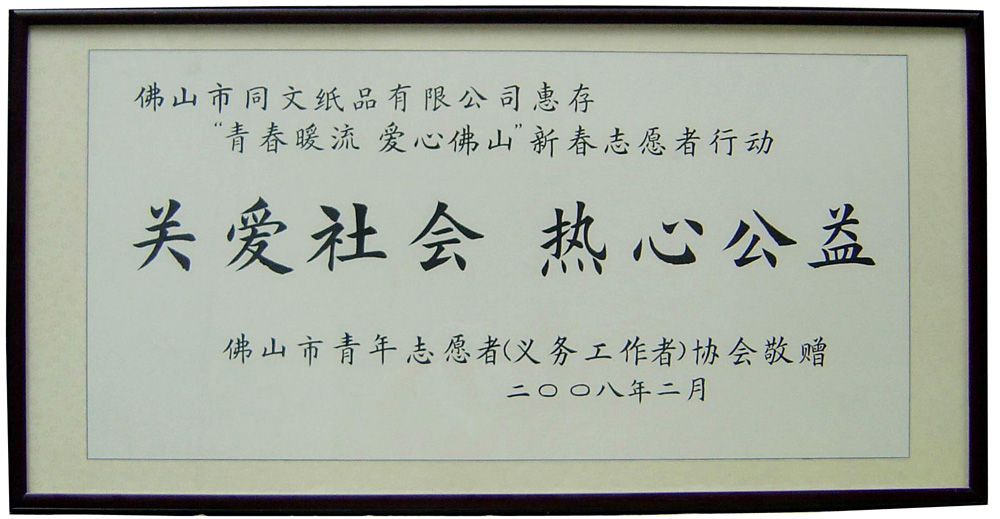 佛山市同文纸品有限公司惠存
“青春暖流 爱心佛山”新春志愿者行动
关爱社会 热心公益
佛山市青年志愿者(义务工作者)协会敬赠
二〇〇八年二月